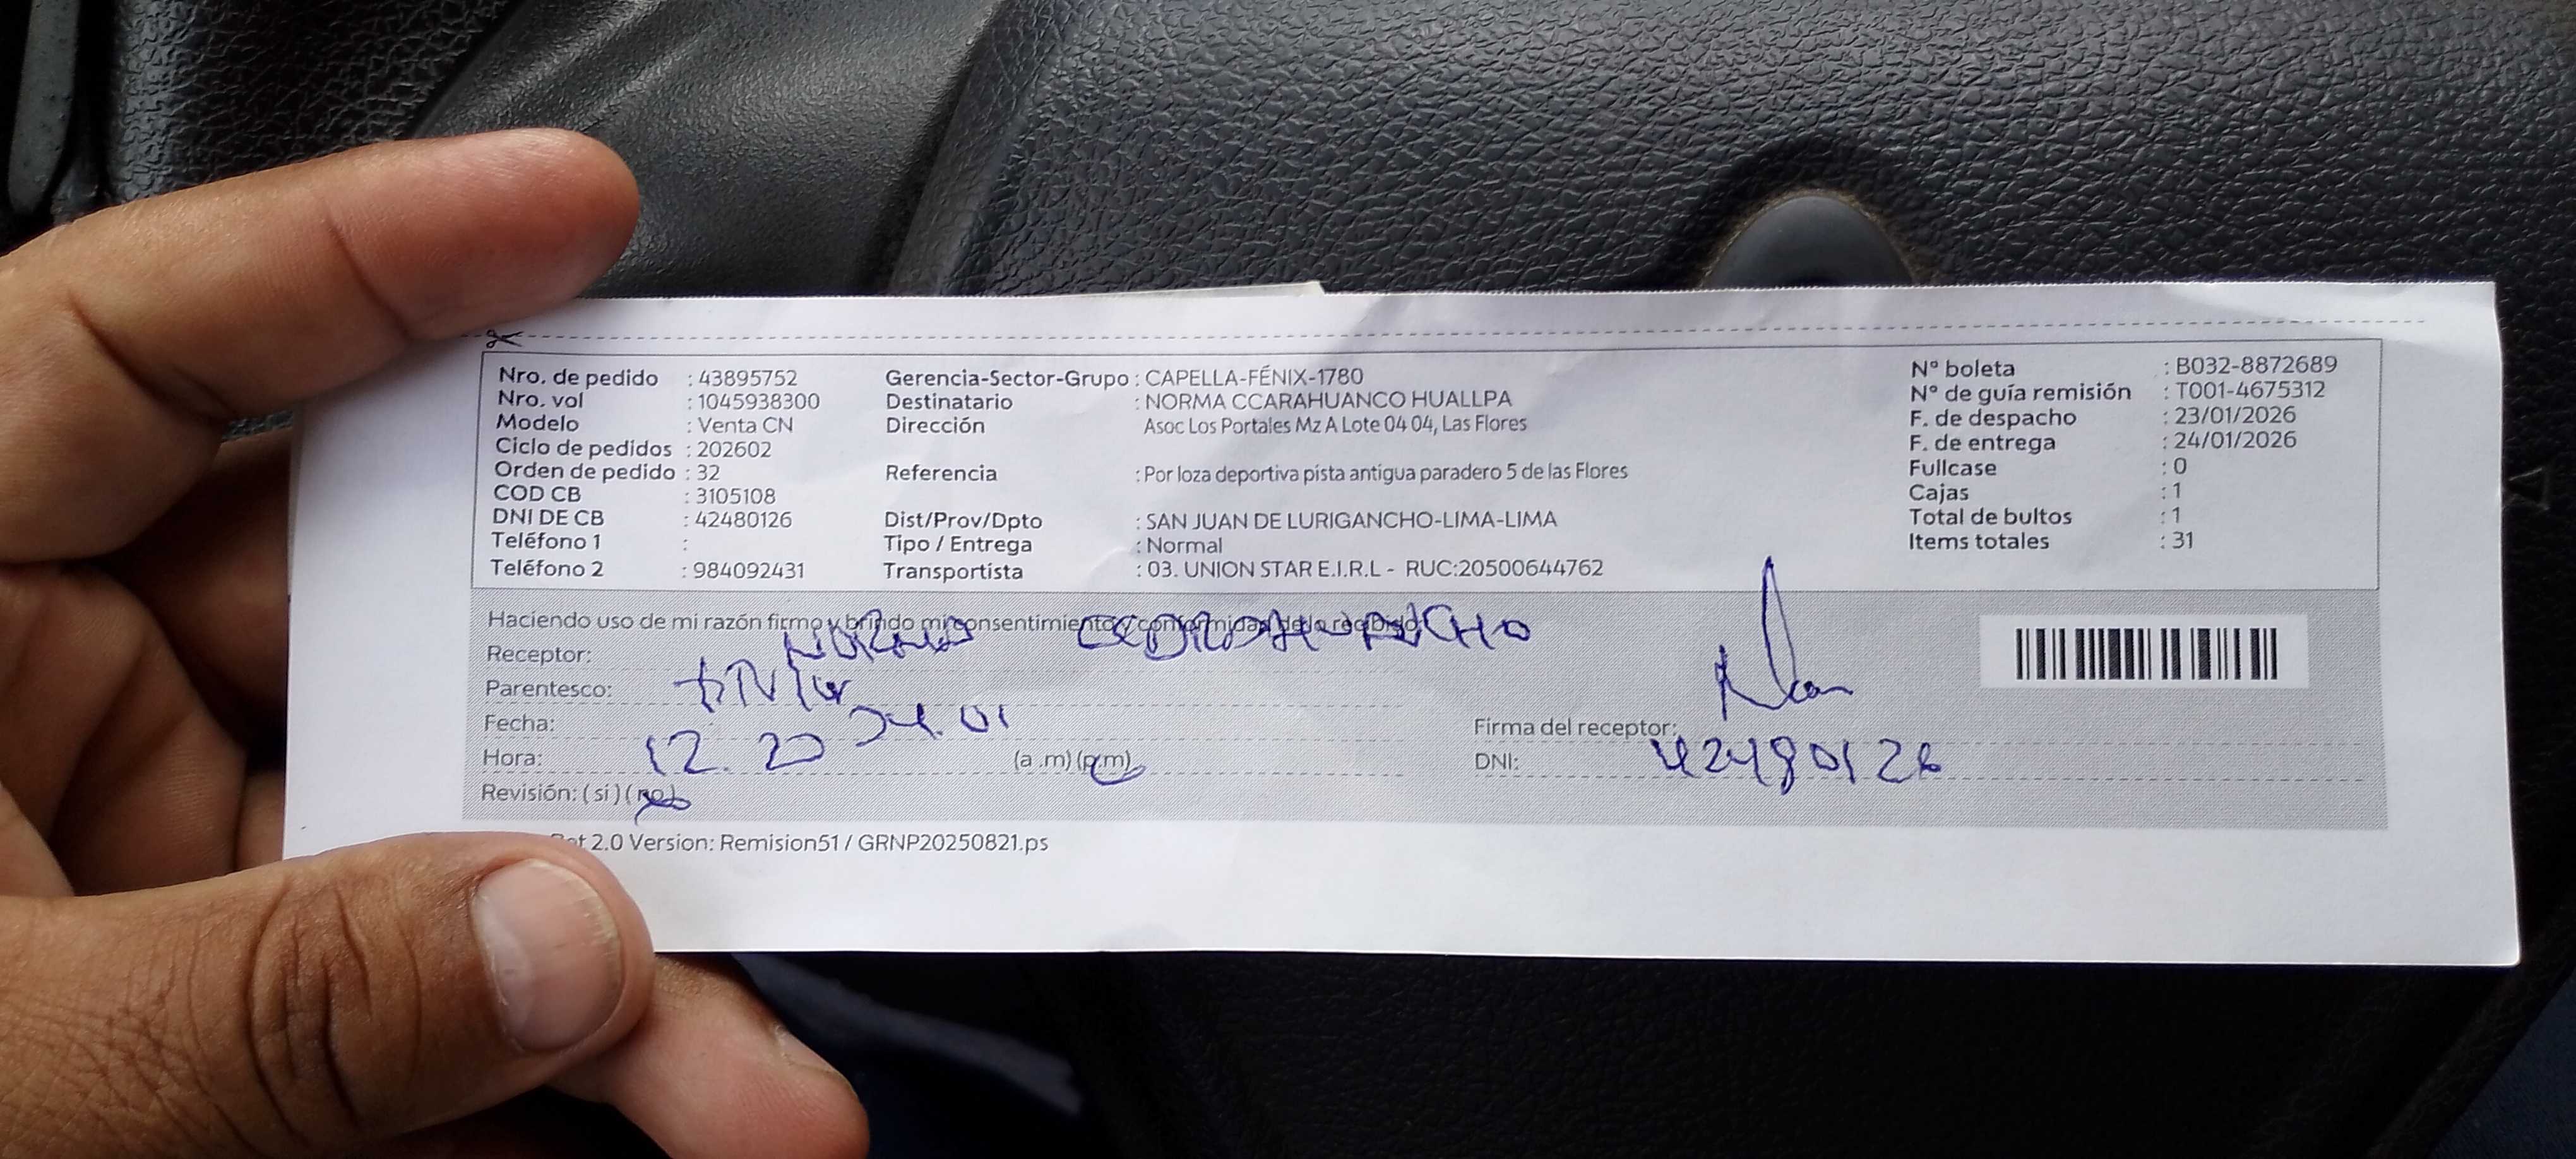 Nro. de pedido : 43895752
Nro. vol : 1045938300
Modelo : Venta CN
Ciclo de pedidos : 202602
Orden de pedido : 32
COD CB : 3105108
DNI DE CB : 42480126
Teléfono 1 :
Teléfono 2 : 984092431
Gerencia-Sector-Grupo : CAPELLA-FÉNIX-1780
Destinatario : NORMA CCARAHUANCO HUALLPA
Dirección Asoc Los Portales Mz A Lote 04 04, Las Flores
Referencia : Por loza deportiva pista antigua paradero 5 de las Flores
Dist/Prov/Dpto : SAN JUAN DE LURIGANCHO-LIMA-LIMA
Tipo / Entrega : Normal
Transportista : 03. UNION STAR E.I.R.L - RUC:20500644762
N° boleta : B032-8872689
N° de guía remisión : T001-4675312
F. de despacho : 23/01/2026
F. de entrega : 24/01/2026
Fullcase : 0
Cajas : 1
Total de bultos : 1
Items totales : 31
Haciendo uso de mi razón firmo y brindo mi consentimiento y conformidad de lo recibido
Receptor: NORMA
Parentesco:
Fecha: 24.01
Hora: 12.20 (a .m) (p.m)
Revisión: ( si ) ( no )
Firma del receptor:
DNI: 42480126
2.0 Version: Remision51 / GRNP20250821.ps